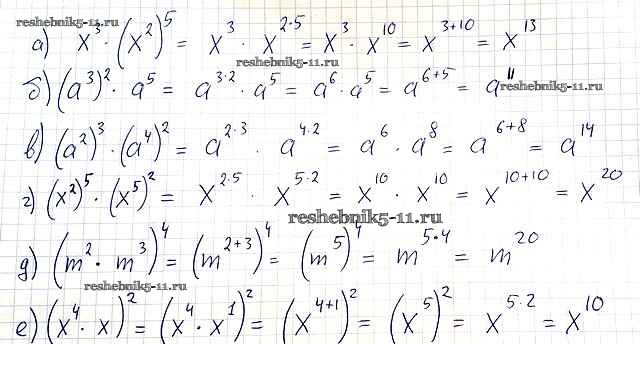 reshebnik5-11.ru
а) x³ · (x²)⁵ = x³ · x²·⁵ = x³ · x¹⁰ = x³⁺¹⁰ = x¹³
reshebnik5-11.ru
б) (a³)² · a⁵ = a³·² · a⁵ = a⁶ · a⁵ = a⁶⁺⁵ = a¹¹
reshebnik5-11.ru
в) (a²)³ · (a⁴)² = a²·³ · a⁴·² = a⁶ · a⁸ = a⁶⁺⁸ = a¹⁴
г) (x²)⁵ · (x⁵)² = x²·⁵ · x⁵·² = x¹⁰ · x¹⁰ = x¹⁰⁺¹⁰ = x²⁰
reshebnik5-11.ru
д) (m² · m³)⁴ = (m²⁺³)⁴ = (m⁵)⁴ = m⁵·⁴ = m²⁰
reshebnik5-11.ru
е) (x⁴ · x)² = (x⁴ · x¹)² = (x⁴⁺¹)² = (x⁵)² = x⁵·² = x¹⁰